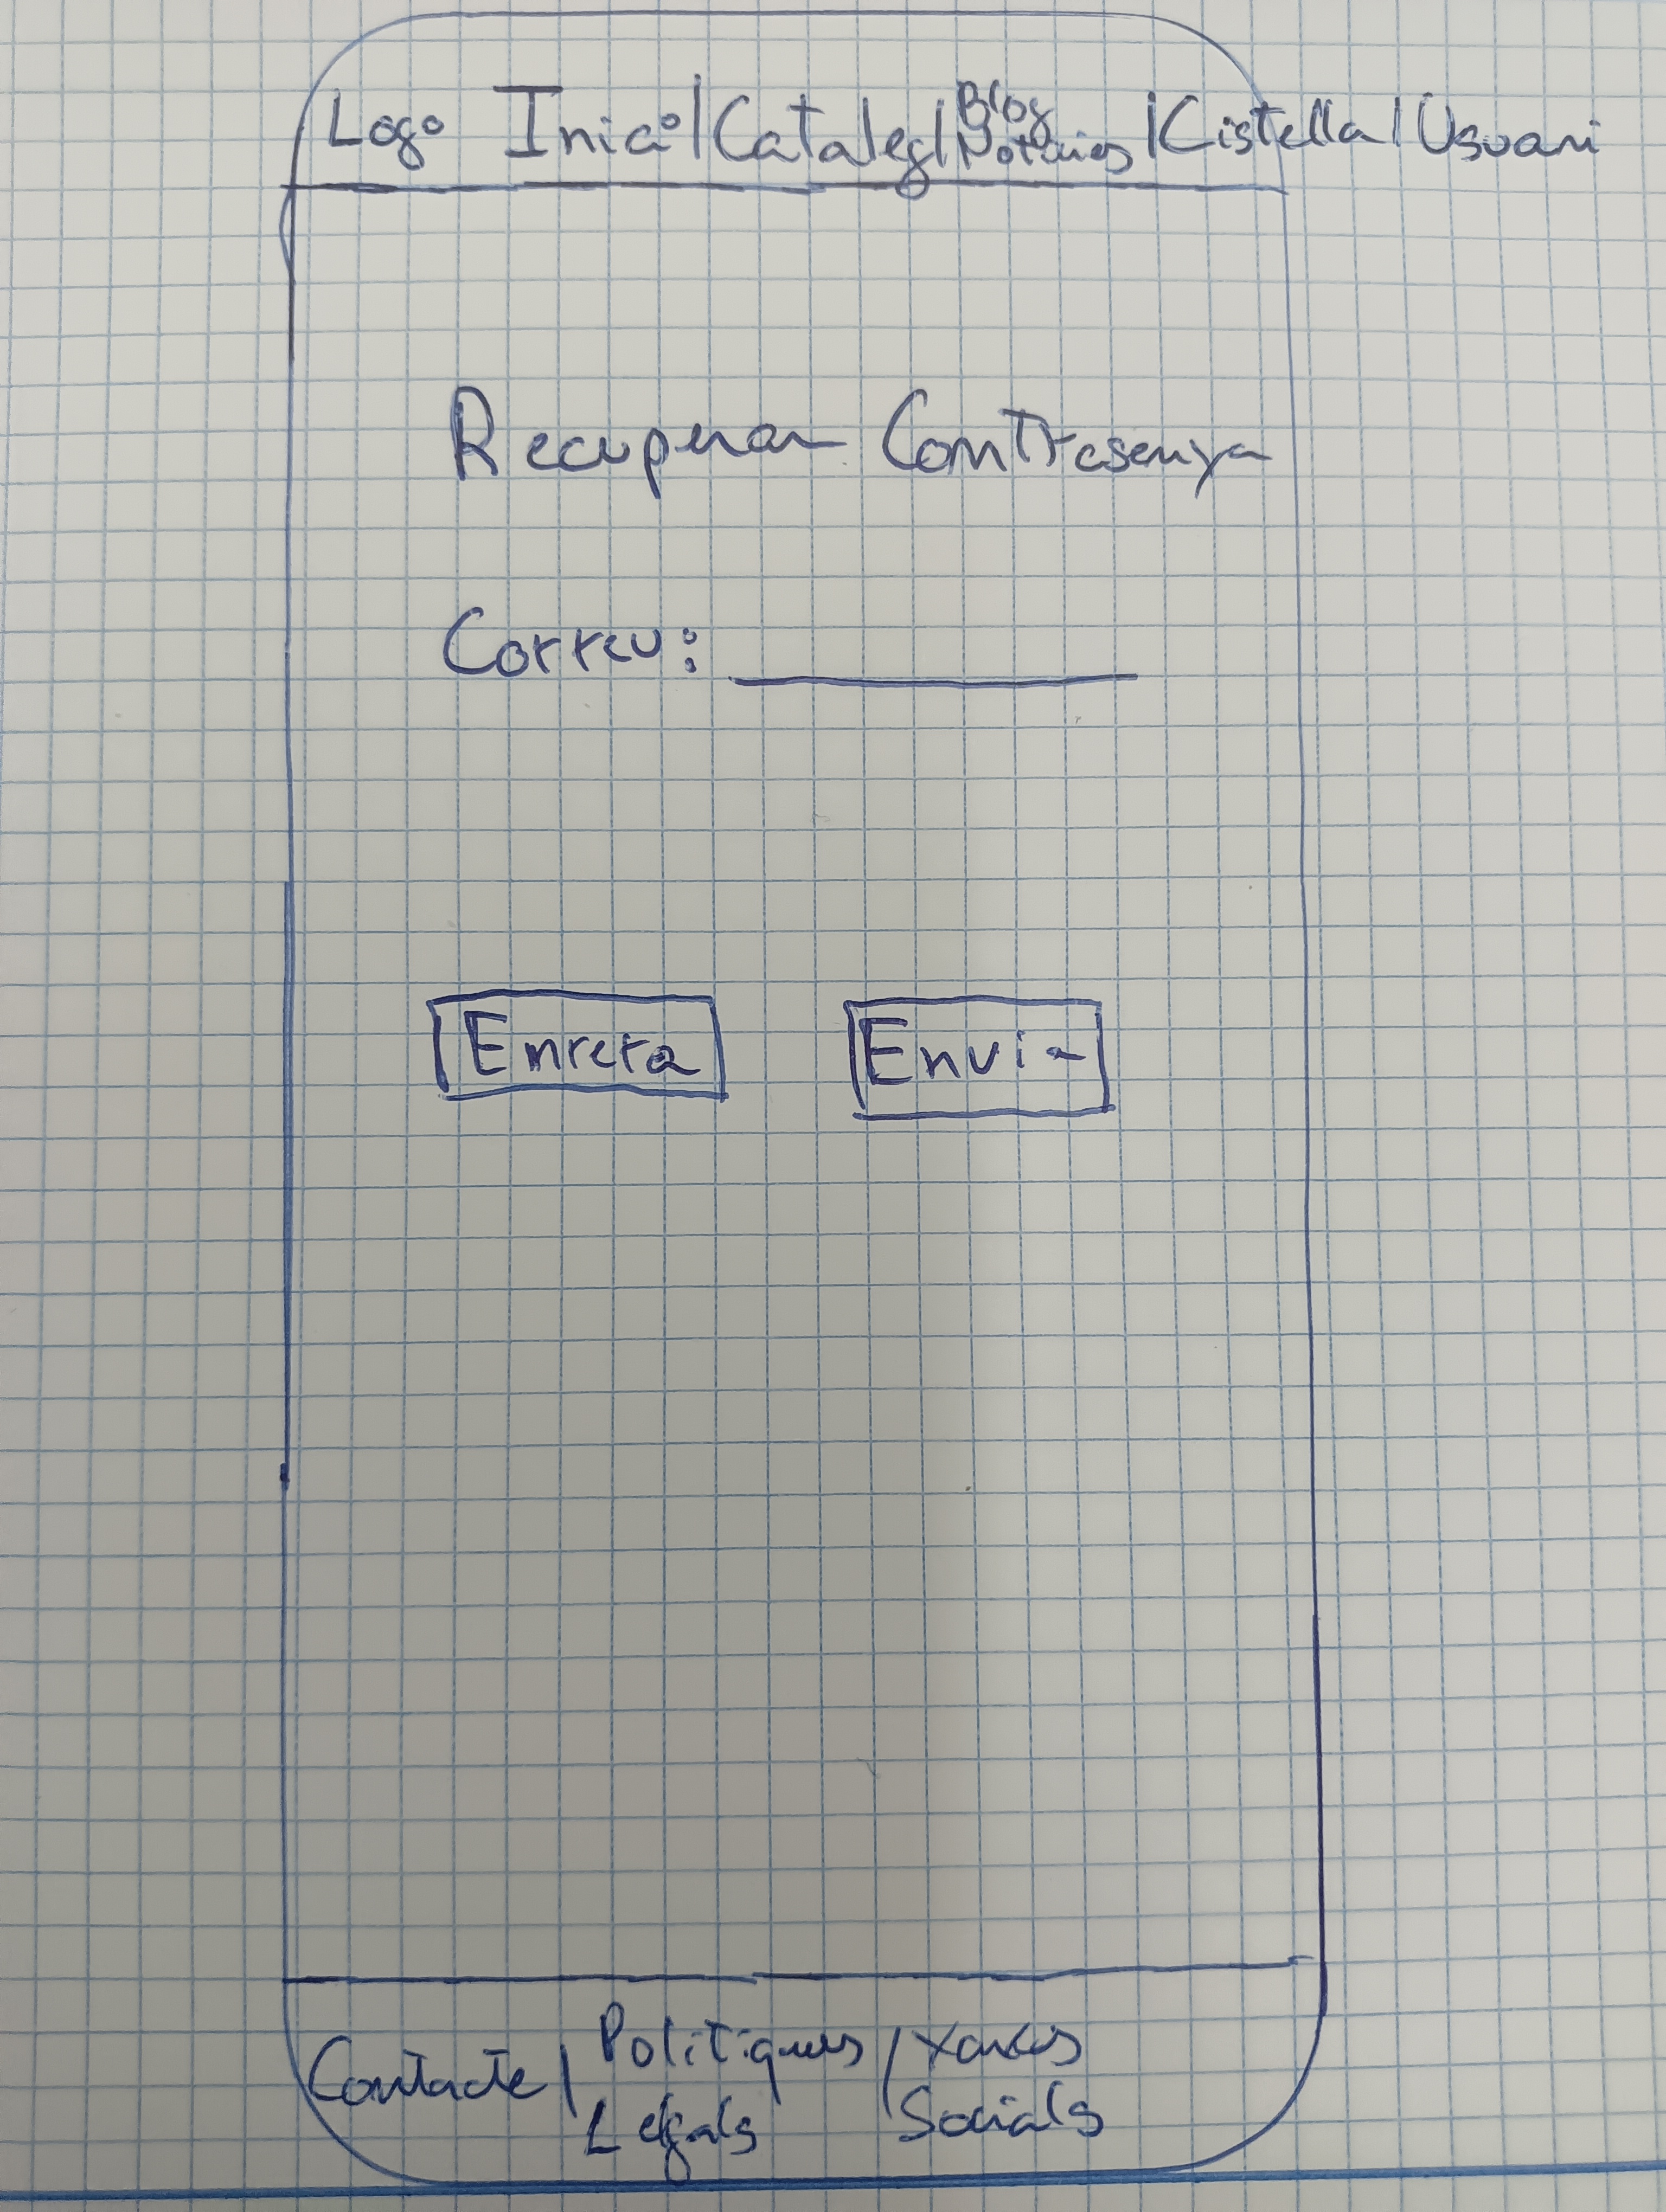 Logo Inici | Cataleg | Blog Noticies | Cistella | Usuari
Recuperar Contrasenya
Correu: ________
Enrera Envia
Contacte | Politiques Legals | Xarxes Socials